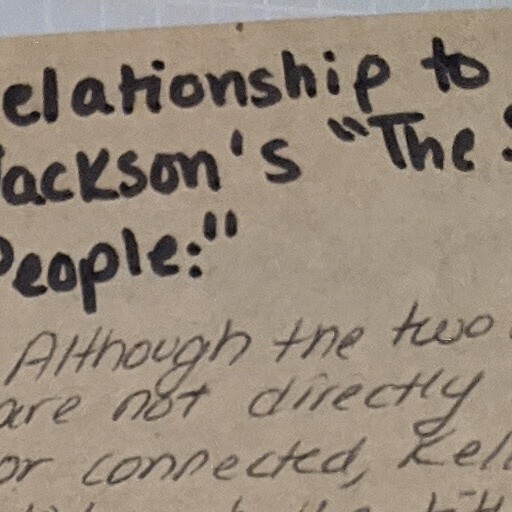 elationship to
Jackson's "The S
People:"
Although the two
are not directly
or connected, Kell